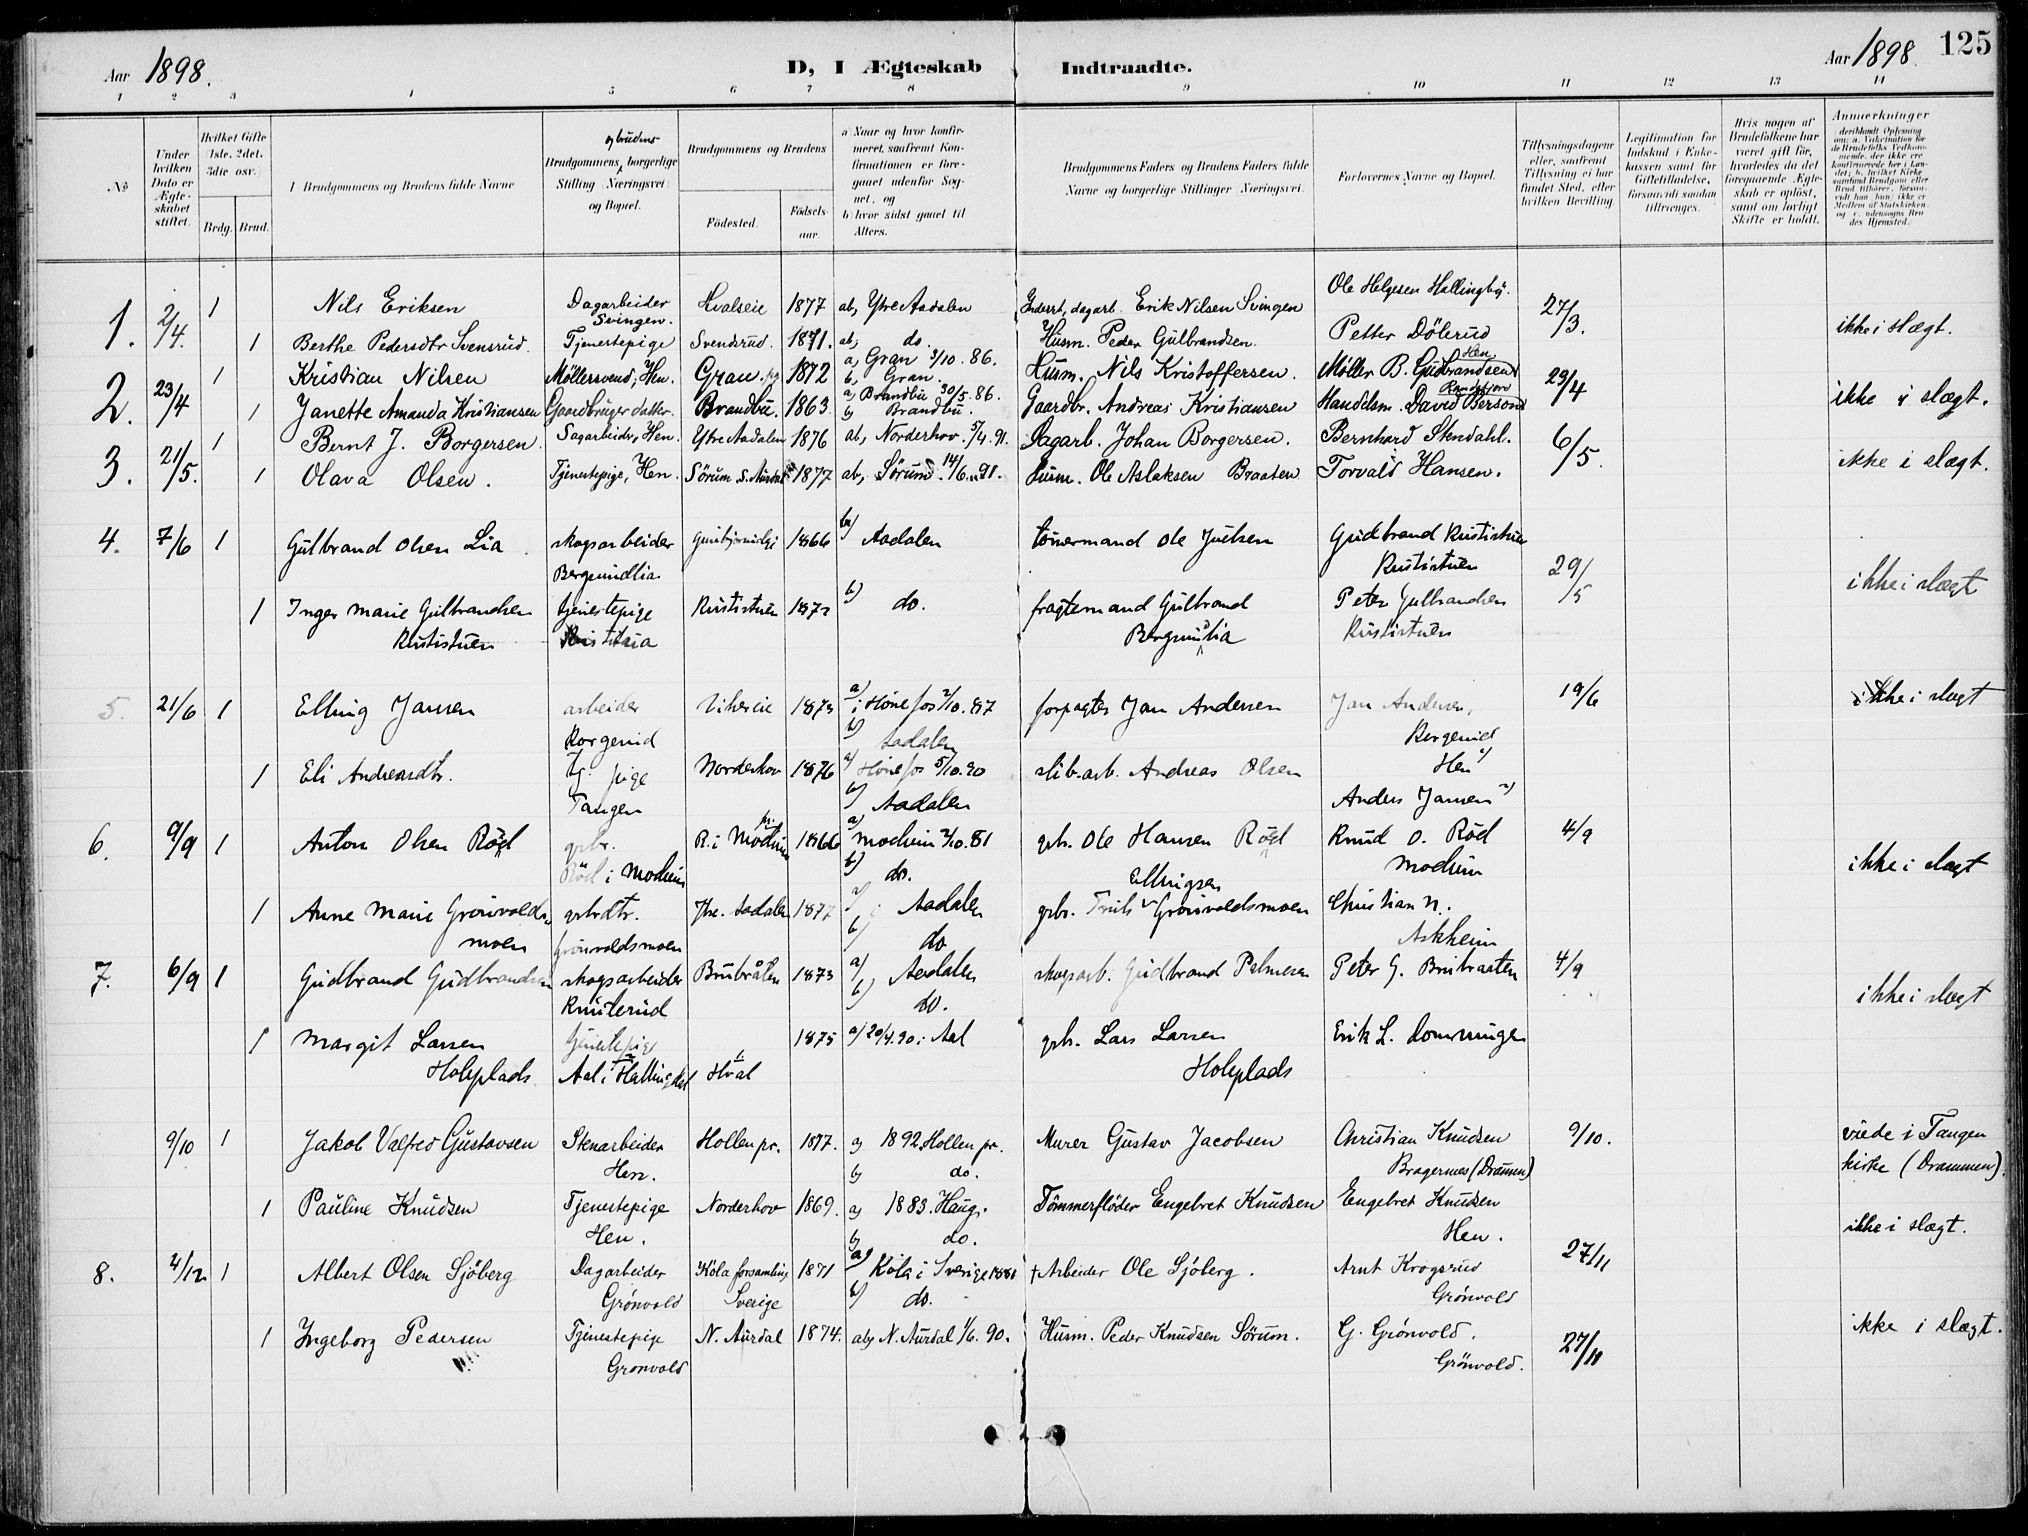 Aar 1898. D, I Ægteskab Indtraadte. Aar 1898. 125
1 2 3 4 5 6 7 8 9 10 11 12 13 14
No
Under hvilken Dato er Ægteskabet stiftet.
Hvilket Gifte 1ste. 2det. 3die osv.
Brdg. Brud.
Brudgommens og Brudens fulde Navne
og brudens
Brudgommens borgerlige Stilling (Næringsvei) og Bopæl.
Brudgommens og Brudens
Fødested. Fødselsaar.
a) Naar og hvor konfirmeret, saafremt Konfirmationen er foregaaet udenfor Sognet, og
b) hvor sidst gaaet til Alters.
Brudgommens Faders og Brudens Faders fulde Navne og borgerlige Stillinger (Næringsvei).
Forlovernes Navne og Bopæl.
Tillysningsdagene eller, saafremt Tillysning ei har fundet Sted, efter hvilken Bevilling.
Legitimation for Indskud i Enkekassen samt for Giftetilladelse, forsaavidt saadan tiltrænges.
Hvis nogen af Brudefolkene har været gift før, hvorledes da det foregaaende Ægteskab er opløst, samt om lovligt Skifte er holdt.
Anmærkninger
Ole Helgesen Hallingby.
1. 2/4. 1 Nils Eriksen Dagarbeider Svingen. Hvalseie 1877 ab, Ytre Aadalen Inderst, dagarb. Erik Nilsen Svingen 27/3.
1 Berthe Pedersdtr Svensrud. Tjenestepige Svendsrud. 1871. ab, do. Husm. Peder Gulbrandsen. Petter Dölerud ikke i slægt.
2. 23/4 1 Kristian Nilsen Møllersvend, Hen. Gran 1872 a, Gran 3/10. 86. b, Gran. Husm. Nils Kristoffersen. Møller B. Gudbrandsen Hen 23/4
1 Janette Amanda Kristiansen Gaardbruger datter. Brandbu. 1863 a, Brandbu 30/5. 86. b, Brandbu. Gaardbr. Andreas Kristiansen Handelsm. David Berson Randsfjord ikke i slægt.
3. 21/5. 1 Bernt J. Borgersen. Sagarbeider, Hen. Ytre Aadalen 1876 ab, Norderhov. 5/4. 91. Sagarb. Johan Borgersen. Bernhard Stendahl. 6/5.
1 Olava Olsen. Tjenestepige, Hen. Sörum S. Aurdal 1877 ab, Sörum 14/6. 91. Husm. Ole Aslaksen Braaten Torvald Hansen. ikke i slægt.
4. 7/6 1 Gulbrand Olsen Lia skogsarbeider Bergsundlia 1866 b) Aadalen tömermand Ole Juelsen Gudbrand Rustistuen Rustistuen 29/5
1 Inger Marie Gulbrandsen Rustistuen tjenestepige Rustistuen b) do. fragtemand Gulbrand Bergsundlia Peter Gulbrandsen Rustistuen ikke i slægt
5. 21/6 1 Elling Jansen arbeider Vikereie 1873 a) i Hönefos 2/10. 87 b) Aadalen forpagter Jan Andersen Jan Andersen, Hen 1) 19/6 ikke i slægt
1 Eli Andreasdtr. tj. pige Tangen Norderhov 1876 a) Hönefos 5/10. 90 b) Aadalen slib.arb. Andreas Olsen Anders Jansen 2)
6. 9/9 1 Anton Olsen Röd gbr. Röd i Modum R. i Modum pr. 1866 a) Modum 2/10. 81 b) do. gbr. Ole Hansen Röd Knud O. Röd Modum 4/9 ikke i slægt
1 Anne Marie Grönvoldsmoen gbrdtr. Grönvoldsmoen Ytre. Aadalen 1877 a) i Aadalen b) do gbr. Truls Ellingsen Grönvoldsmoen Christian N. Askheim
7. 6/9 1 Gudbrand Gudbrandsen skogsarbeider Knuterud Brubråten 1873 a) Aadalen b) do. skogsarb. Gudbrand Palmesen Peter G. Brubraaten 4/9 ikke i slægt
1 Margit Larsen Holeplads tjenestepige Aal i Hallingdal Hval 1875 a) 20/4. 90 i Aal gbr. Lars Larsen Holeplads Erik L.
9/10 1 Jakob Valfred Gustavsen Stenarbeider Hen. Hollen pr. 1877. a) 1892 Hollen pr. b) do. Murer Gustav Jacobsen Christian Knudsen Bragernes (Drammen) 9/10. viede i Tangen kirke (Drammen).
1 Pauline Knudsen Tjenestepige Hen. Norderhov 1869. a) 1883. Haug. b) do. Tömmerflöder Engebret Knudsen Engebret Knudsen Hen. ikke i slægt.
8. 4/12 1 Albert Olsen Sjöberg Dagarbeider Grönvold Köla forsamling Sverige 1871 a) Köla i Sverige 1881 b) do. + Arbeider Ole Sjöberg. Arnt Krogsrud Grönvold 27/11
1 Ingeborg Pedersen Tjenestepige Grønvold N. Aurdal 1874. ab, N. Aurdal 1/6. 90. Husm. Peder Knudsen Sörum. G. Grönvold. Grönvold. 27/11 ikke i slægt.